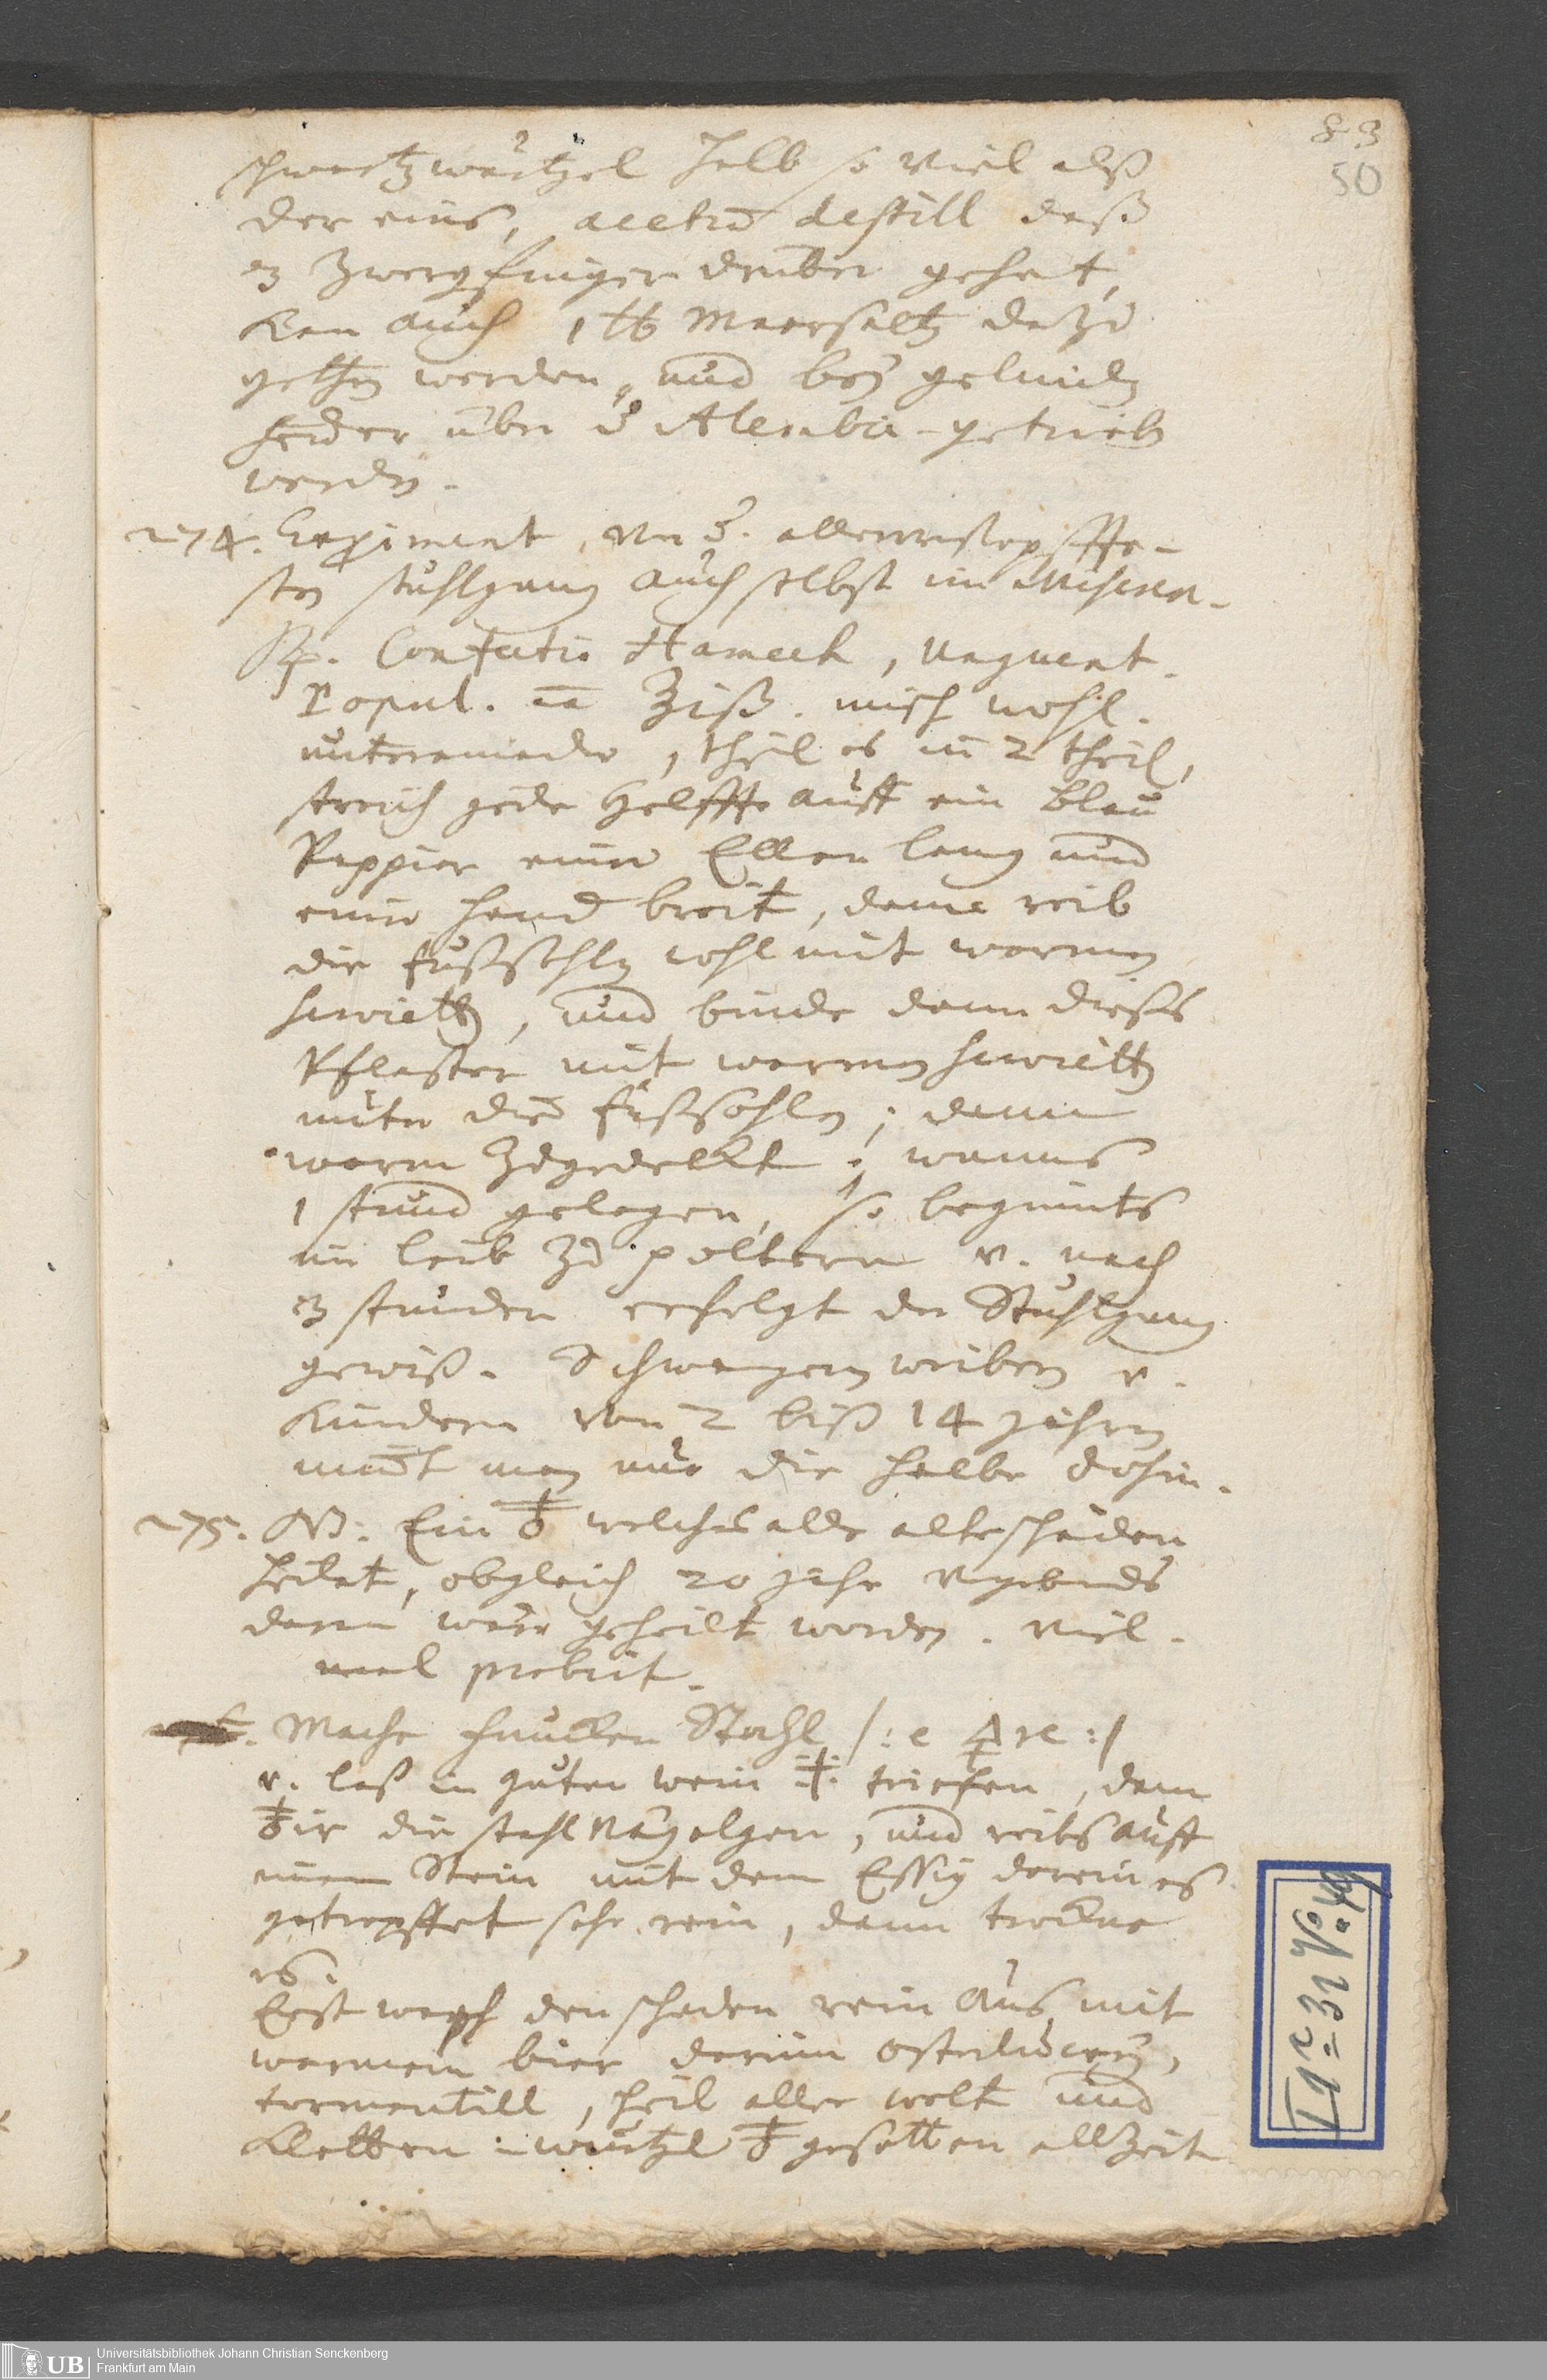 83
50
schwartzwurtzel halb so viel alß
der eins, acetū destill daß
3 Zwergfinger drüber gehet,
kan auch 1 ℔ Meersaltz dazu
gethan werden, und bey gelinden
feüer über den Alembic getrieben
werden.
274. Expiment, von allerverstopffte-
sten stuhlgang auch selbst im Miserer.
Rp. Confectio Hamech, Unguent.
Popul. aa Ziß. misch wohl
untereinander, theil es in 2 theil,
streich jede Helffte auff ein blau
Pappier einer Ellen lang und
einer hand breit, dann reib
die fußsohlen wohl mit warmen
servietten, und binde dann dieses
Pflaster mit warmen servietten
unter die fußsohlen; dann
warm zugedeckt; wanns
1 stund gelegen, so beginnts
im leib zu poltern v. nach
3 stunden erfolgt der Stuhlgang
gewiß. Schwangern weibern v.
kindern von 2 biß 14 jahren
nimt man nur die halbe dosin.
275. NB. Ein welches alle alte schäden
heilet, obgleich 20 jahr vergebends
daran wäre geheilt worden. viel-
mal probirt.
Mache funcken Stahl /: e :/
v. laß in guten wein triefen, dann
die stahl Kügelgen, und reibs auff
einem Stein mit dem Essig darein es
getropffet sehr rein, dann trockne
es.
Erst wasch den schaden rein aus mit
warmem bier darinn osterlucey,
tormentill, heil aller welt und
Kletten-wurtzel gesotten allzeit
Universitätsbibliothek Johann Christian Senckenberg
Frankfurt am Main
UB